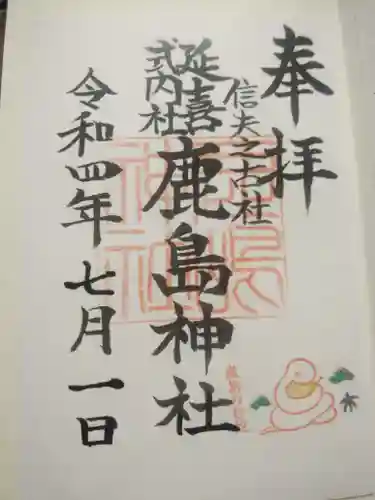 奉拝
信夫之古社
延喜
式内社
鹿島神社
令和四年七月一日
鹿島神社